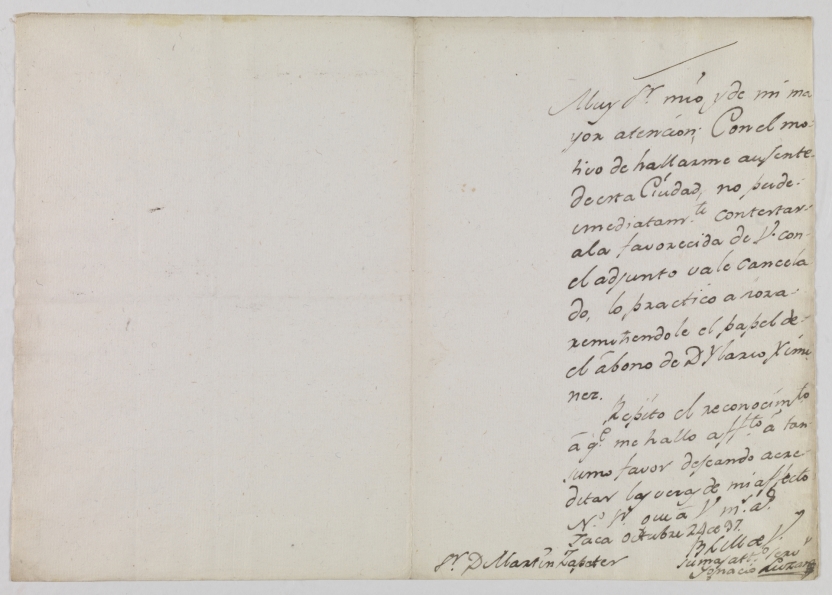 Muy Sr. mío y de mi ma
yor atencion; Con el mo-
tivo de hallarme ausente
de esta Ciudad, no pude
imediatamte. contestar
a la favorecida de V. con
el adjunto vale cancela
do, lo practico a ora
remitiendole el papel de
el abono de Dn Ylario Ximi
nez.
Repito el reconocimto.
à qe. me hallo à tan
sumo favor deseando acre-
ditar las veras de mi affecto
N. S. que à V. ms. as.
Jaca Octubre 24 de
B L M de V.
su mas atto.
Sr. Dn Martin Zapater
Ignacio